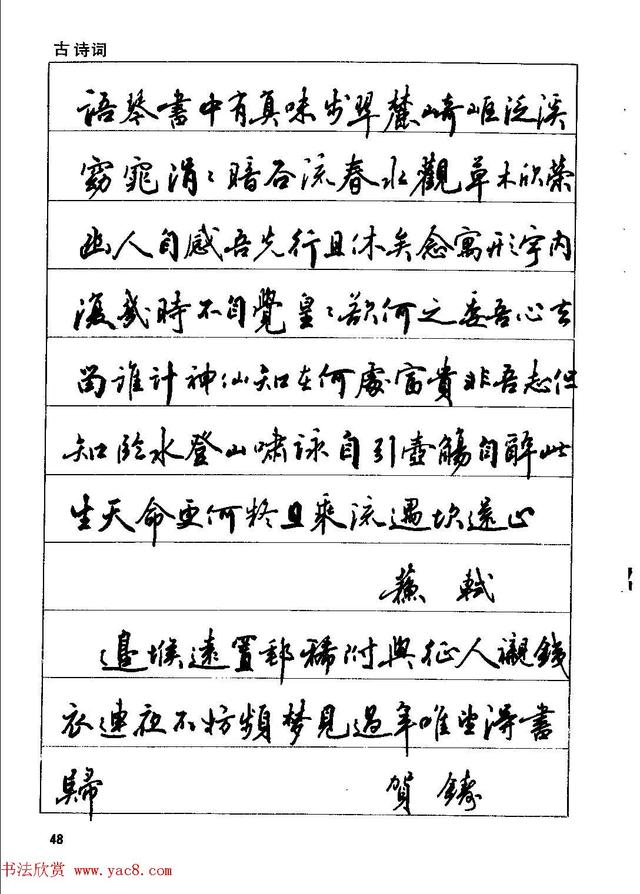 古诗词
語琴書中有真味步翠麓崎嶇泛溪
窈窕涓涓暗谷流春水觀草木欣榮
幽人自感吾先行且休矣念寓形宇内
復幾時不自覺皇皇欲何之委吾心去
留誰計神仙知在何處富貴非吾志但
知臨水登山啸詠自引壺觴自醉此
生天命更何疑且乘流遇坎還止
蘇軾
邊堠遠置郵稀附與征人襯鐵
衣連夜不妨頻梦見過年唯望得書
歸 賀鑄
48
书法欣赏 www.yac8.com